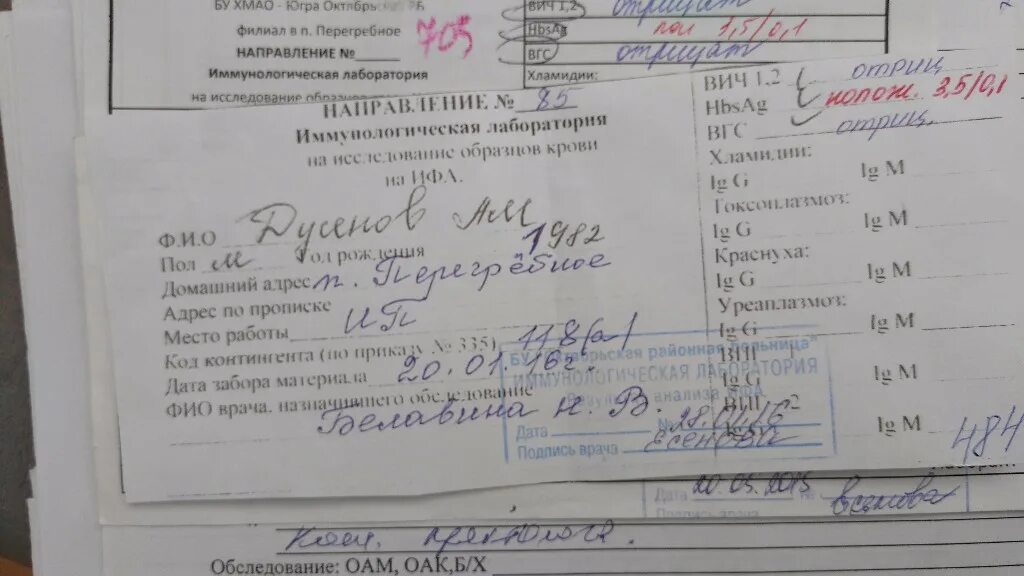 БУ ХМАО - Югра Октябрьская РБ
филиал в п. Перегребное
НАПРАВЛЕНИЕ №
Иммунологическая лаборатория
на исследование образцов
705
ВИЧ 1,2 отрицат
HbsAg пол 1,5/0,1
ВГС отрицат
Хламидии:
НАПРАВЛЕНИЕ № 85
Иммунологическая лаборатория
на исследование образцов крови
на ИФА.
Ф.И.О Дусенов АМ
Пол м Год рождения 1982
Домашний адрес п. Перегрёбное
Адрес по прописке
Место работы ИП
Код контингента (по приказу № 335) 118(а)
Дата забора материала 20.01.16г.
ФИО врача, назначившего обследование
Белавина Н. В.
ВИЧ 1,2 отриц
HbsAg полож. 3,5/0,1
ВГС отриц.
Хламидии:
Ig G Ig M
Токсоплазмоз:
Ig G Ig M
Краснуха:
Ig G Ig M
Уреаплазмоз:
Ig G Ig M
ВПГ
Ig G Ig M
ВПГ 2
Ig G Ig M
484
БУ "Октябрьская районная больница"
ИММУНОЛОГИЧЕСКАЯ ЛАБОРАТОРИЯ
Результат анализа ИФА
Дата № 28/01/16
Подпись врача Есенова
Дата 20.03.2015
Подпись врача Есенова
Обследование: ОАМ, ОАК,Б/Х